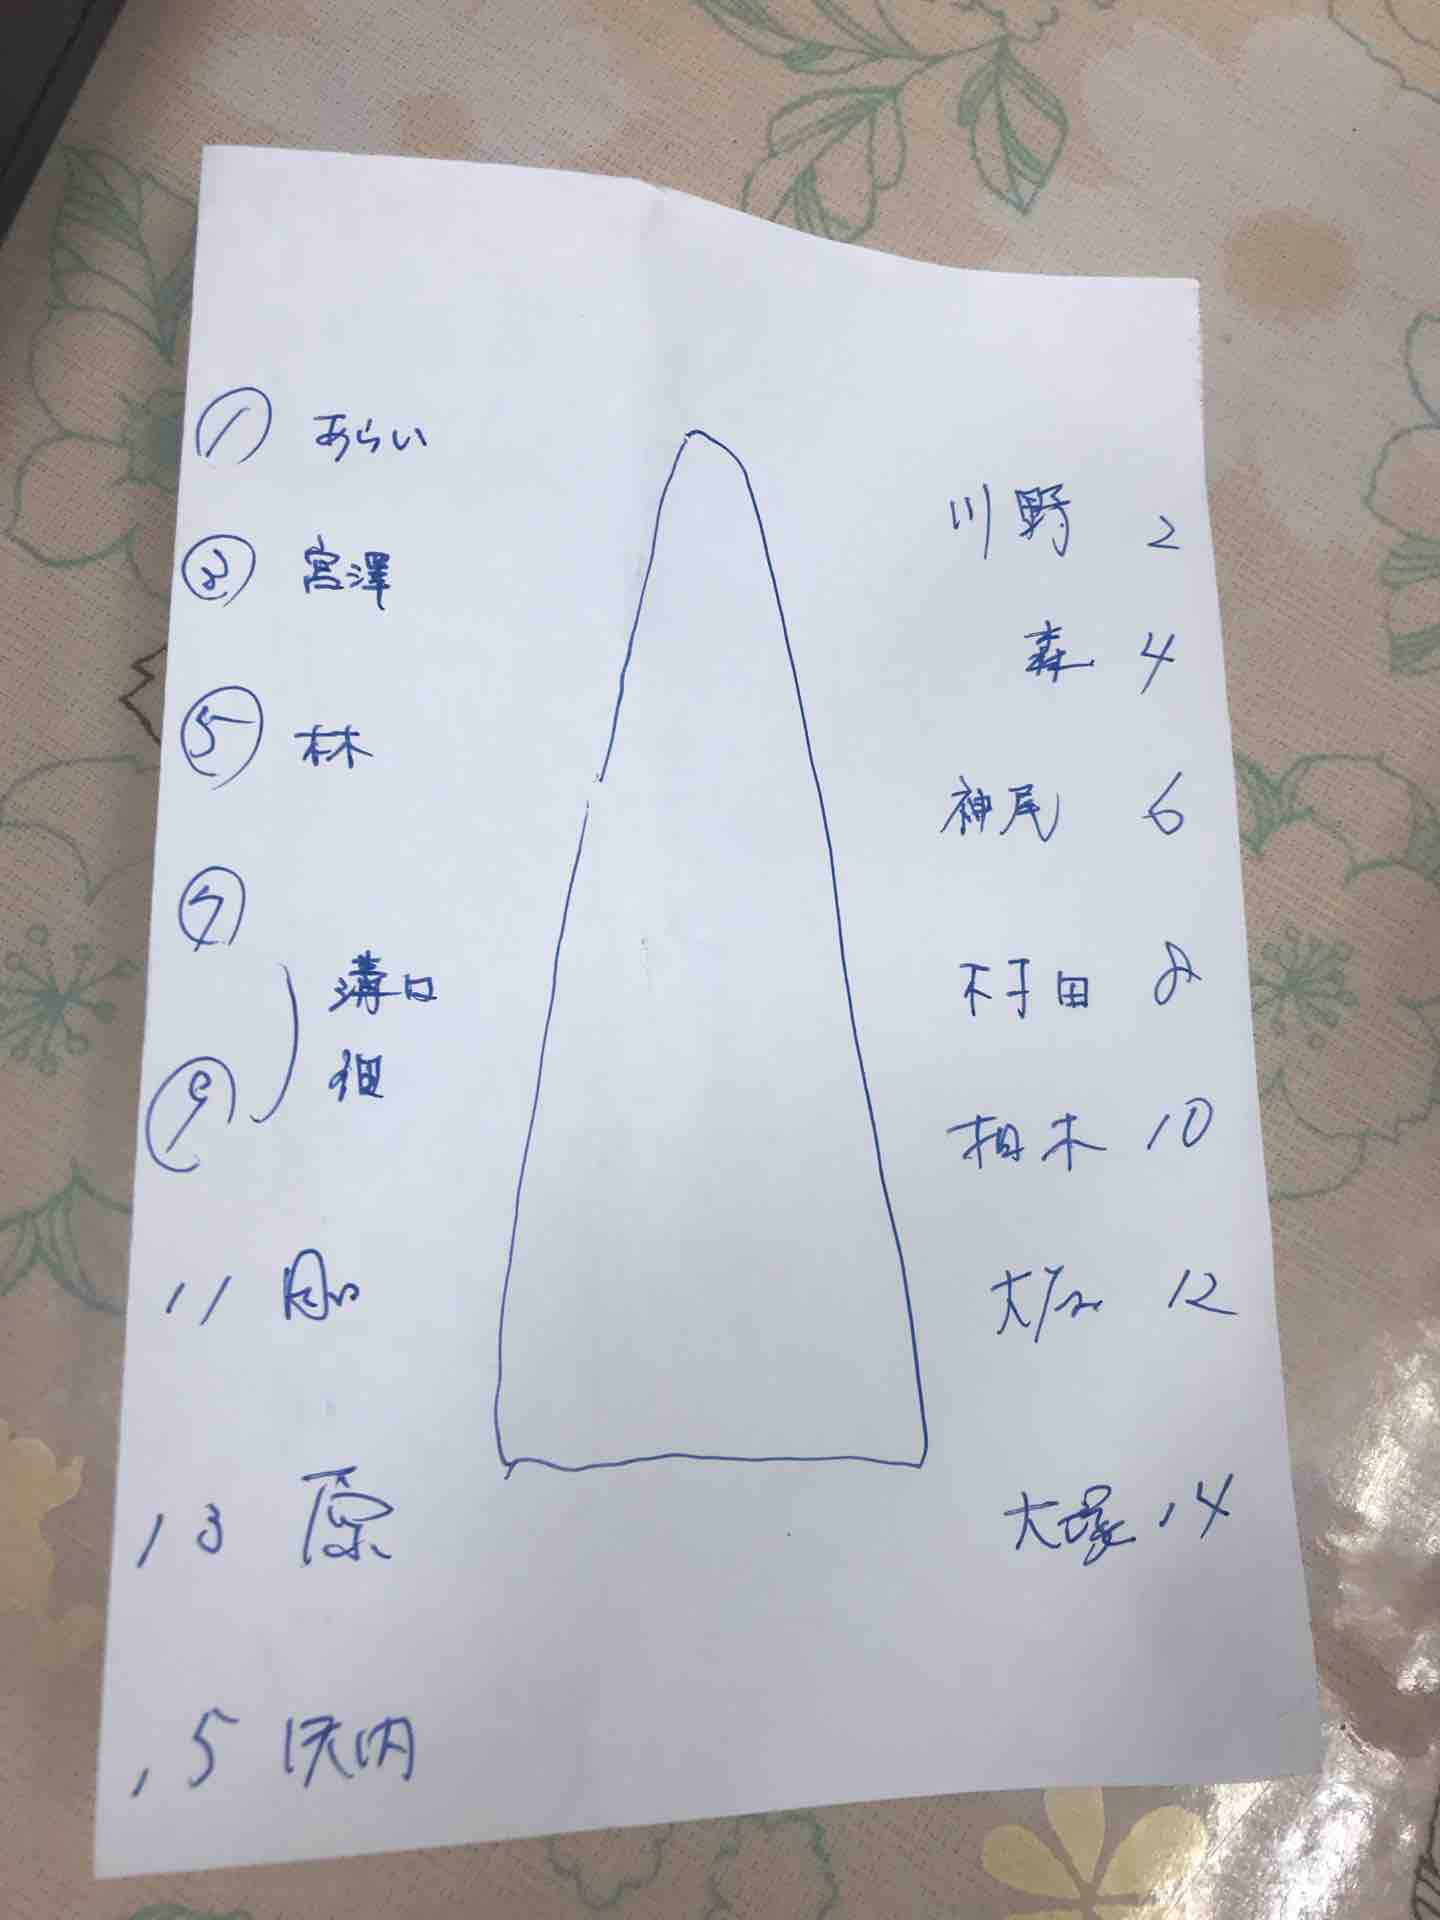 ① あらい
③ 宮澤
⑤ 林
⑦
溝口
⑨ 畑
11
13 原
15
川野 2
森 4
神尾 6
村田 8
柏木 10
大阪 12
大塚 14